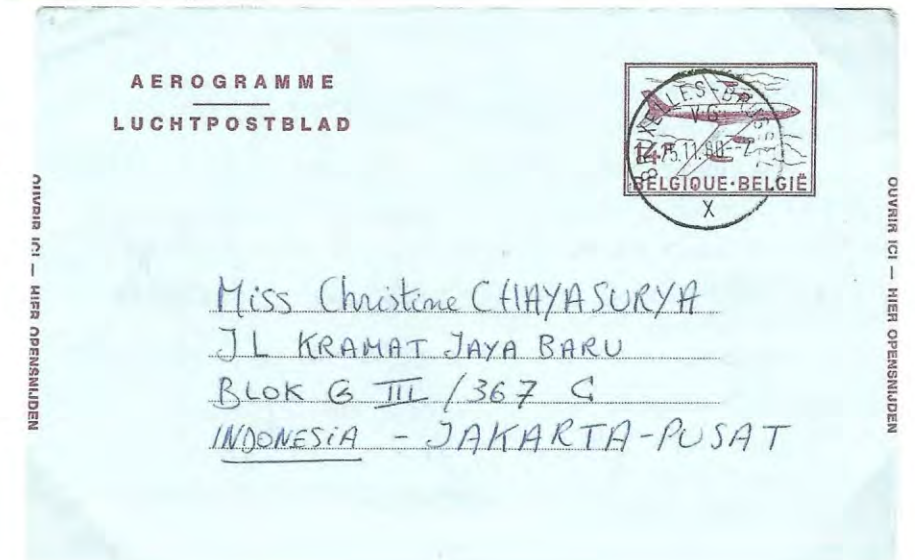 AEROGRAMME
LUCHTPOSTBLAD
BRUXELLES-BRUSSEL
V-G
14F
25.11.80--
BELGIQUE·BELGIË
X
OUVRIR ICI — HIER OPENSNIJDEN
Miss Christine CHAYASURYA
JL KRAMAT JAYA BARU
BLOK G III / 367 C
INDONESiA - JAKARTA-PUSAT
OUVRIR ICI — HIER OPENSNIJDEN